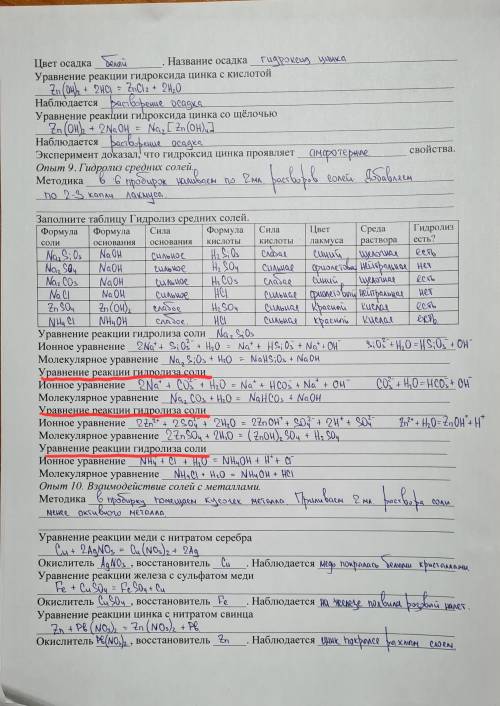 Цвет осадка белый. Название осадка гидроксид цинка
Уравнение реакции гидроксида цинка с кислотой
Zn(OH)₂ + 2HCl = ZnCl₂ + 2H₂O
Наблюдается растворение осадка
Уравнение реакции гидроксида цинка со щёлочью
Zn(OH)₂ + 2NaOH = Na₂[Zn(OH)₄]
Наблюдается растворение осадка
Эксперимент доказал, что гидроксид цинка проявляет амфотерные свойства.
Опыт 9. Гидролиз средних солей.
Методика в 6 пробирок наливаем по 2 мл. растворов солей. Добавляем
по 2-3 капли лакмуса.
Заполните таблицу Гидролиз средних солей.
Формула соли Формула основания Сила основания Формула кислоты Сила кислоты Цвет лакмуса Среда раствора Гидролиз есть?
Na₂SiO₃ NaOH сильное H₂SiO₃ слабая синий щелочная есть
Na₂SO₄ NaOH сильное H₂SO₄ сильная фиолетовый нейтральная нет
Na₂CO₃ NaOH сильное H₂CO₃ слабая синий щелочная есть
NaCl NaOH сильное HCl сильная фиолетовый нейтральная нет
ZnSO₄ Zn(OH)₂ слабое H₂SO₄ сильная красный кислая есть
NH₄Cl NH₄OH слабое HCl сильная красный кислая есть
Уравнение реакции гидролиза соли Na₂SiO₃
Ионное уравнение 2Na⁺ + SiO₃²⁻ + H₂O = Na⁺ + HSiO₃⁻ + Na⁺ + OH⁻ SiO₃²⁻ + H₂O = HSiO₃⁻ + OH⁻
Молекулярное уравнение Na₂SiO₃ + H₂O = NaHSiO₃ + NaOH
Уравнение реакции гидролиза соли
Ионное уравнение 2Na⁺ + CO₃²⁻ + H₂O = Na⁺ + HCO₃⁻ + Na⁺ + OH⁻ CO₃²⁻ + H₂O = HCO₃⁻ + OH⁻
Молекулярное уравнение Na₂CO₃ + H₂O = NaHCO₃ + NaOH
Уравнение реакции гидролиза соли
Ионное уравнение 2Zn²⁺ + 2SO₄²⁻ + 2H₂O = 2ZnOH⁺ + SO₄²⁻ + 2H⁺ + SO₄²⁻ Zn²⁺ + H₂O = ZnOH⁺ + H⁺
Молекулярное уравнение 2ZnSO₄ + 2H₂O = (ZnOH)₂SO₄ + H₂SO₄
Уравнение реакции гидролиза соли
Ионное уравнение NH₄ + Cl + H₂O = NH₄OH + H⁺ + Cl⁻
Молекулярное уравнение NH₄Cl + H₂O = NH₄OH + HCl
Опыт 10. Взаимодействие солей с металлами.
Методика в пробирку помещаем кусочек металла. Приливаем 2 мл. раствора соли
менее активного металла
Уравнение реакции меди с нитратом серебра
Cu + 2AgNO₃ = Cu(NO₃)₂ + 2Ag
Окислитель AgNO₃, восстановитель Cu. Наблюдается медь покрылась белыми кристаллами
Уравнение реакции железа с сульфатом меди
Fe + CuSO₄ = FeSO₄ + Cu
Окислитель CuSO₄, восстановитель Fe. Наблюдается на железе розовый налет.
Уравнение реакции цинка с нитратом свинца
Zn + Pb(NO₃)₂ = Zn(NO₃)₂ + Pb
Окислитель Pb(NO₃)₂, восстановитель Zn. Наблюдается цинк покрылся рыхлым слоем.